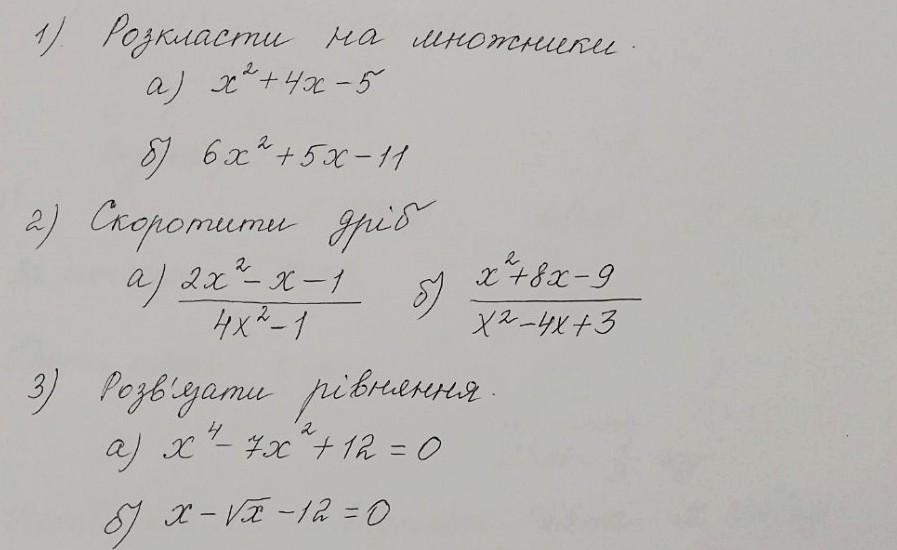 1) Розкласти на множники.
а) x² + 4x - 5
б) 6x² + 5x - 11
2) Скоротити дріб
а) (2x² - x - 1)/(4x² - 1) б) (x² + 8x - 9)/(x² - 4x + 3)
3) Розв'язати рівняння.
а) x⁴ - 7x² + 12 = 0
б) x - √x - 12 = 0